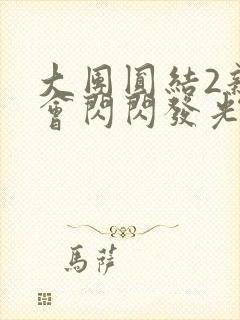 大團圓結2新
會閃閃發光
馬薩